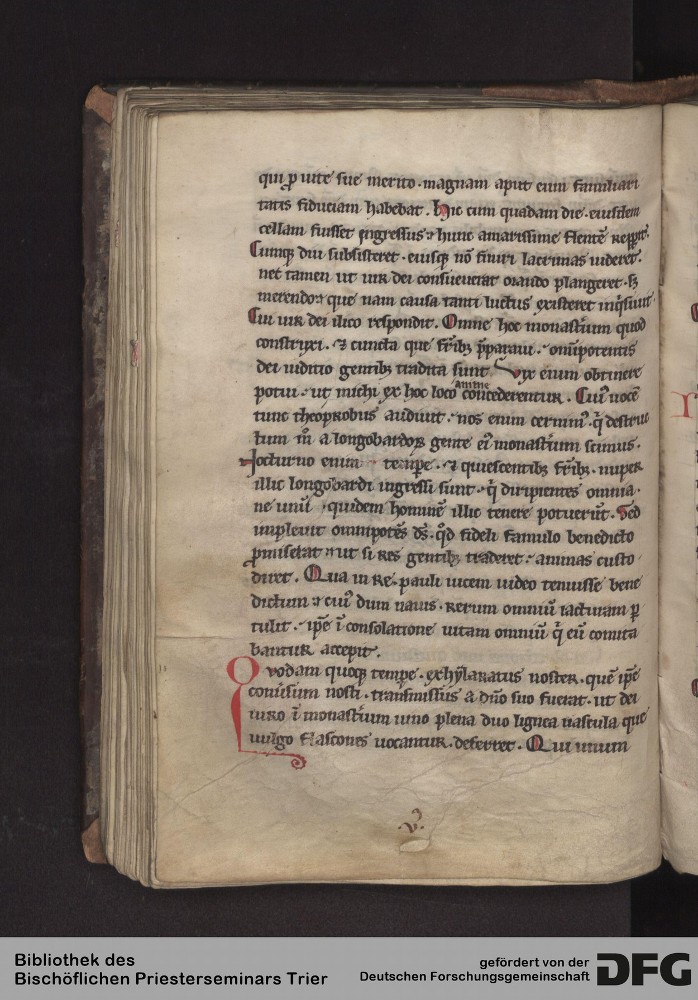 qui ꝑ uite sue merito · magnam aput eum familiari
tatis fiduciam habebat . hic cum quadam die · eiusdem
cellam fuisset ingressus · hunc amarissime flentē repperit .
Cumqꝫ diu subsisteret · eiusqꝫ nō finiri lacrimas uideret ·
nec tamen ut uir dei consueuerat orando plangeret · sꝫ
merendo · que nam causa tanti luctus existeret inqͥsiuit ·
Cui uir dei ilico respondit . Omne hoc monastͥium quod
construxi · ⁊ cuncta que fr̄ibꝫ p̄paraui · om̄ipotentis
dei iuditio gentibꝫ tradita sunt Vix enim obtinere
potui · ut michi ex hoc loco anime concederentur . Cuiꝰ uocē
tunc theoprobus audiuit · nos enim cernimꝰ · q̄ destruc
tum m̄ a longobardoꝝ gente eiꝰ monastͥium scimus ·
Nocturno enim tempe · ⁊ quiescentibꝫ fr̄ibꝫ · nuper
illic longobardi ingressi sunt · q̄ diripientes omnia ·
ne unū quidem hominē illic tenere potuerūt . Sed
impleuit omnipotēs ds̄ · qd̄ fideli famulo benedicto
ꝓmiserat · ut si res gentibꝫ traderet · animas custo
diret . Qua in re · pauli uicem uideo tenuisse bene
dictum · cuiꝰ dum nauis · rerum omniū iacturam ꝑ
tulit · ip̄e ī consolatione uitam omniū q̄ eū comita
bantur accepit .
Qvodam quoqꝫ tempe · exhylaratus noster · quē ip̄e
conūsum nosti · transmissus a dn̄o suo fuerat · ut dei
uiro ī monastͥium uino plena duo lignea uascula que
uulgo flascones uocantur · deferret . Qui unum
· v ·
Bibliothek des
Bischöflichen Priesterseminars Trier
gefördert von der
Deutschen Forschungsgemeinschaft
DFG